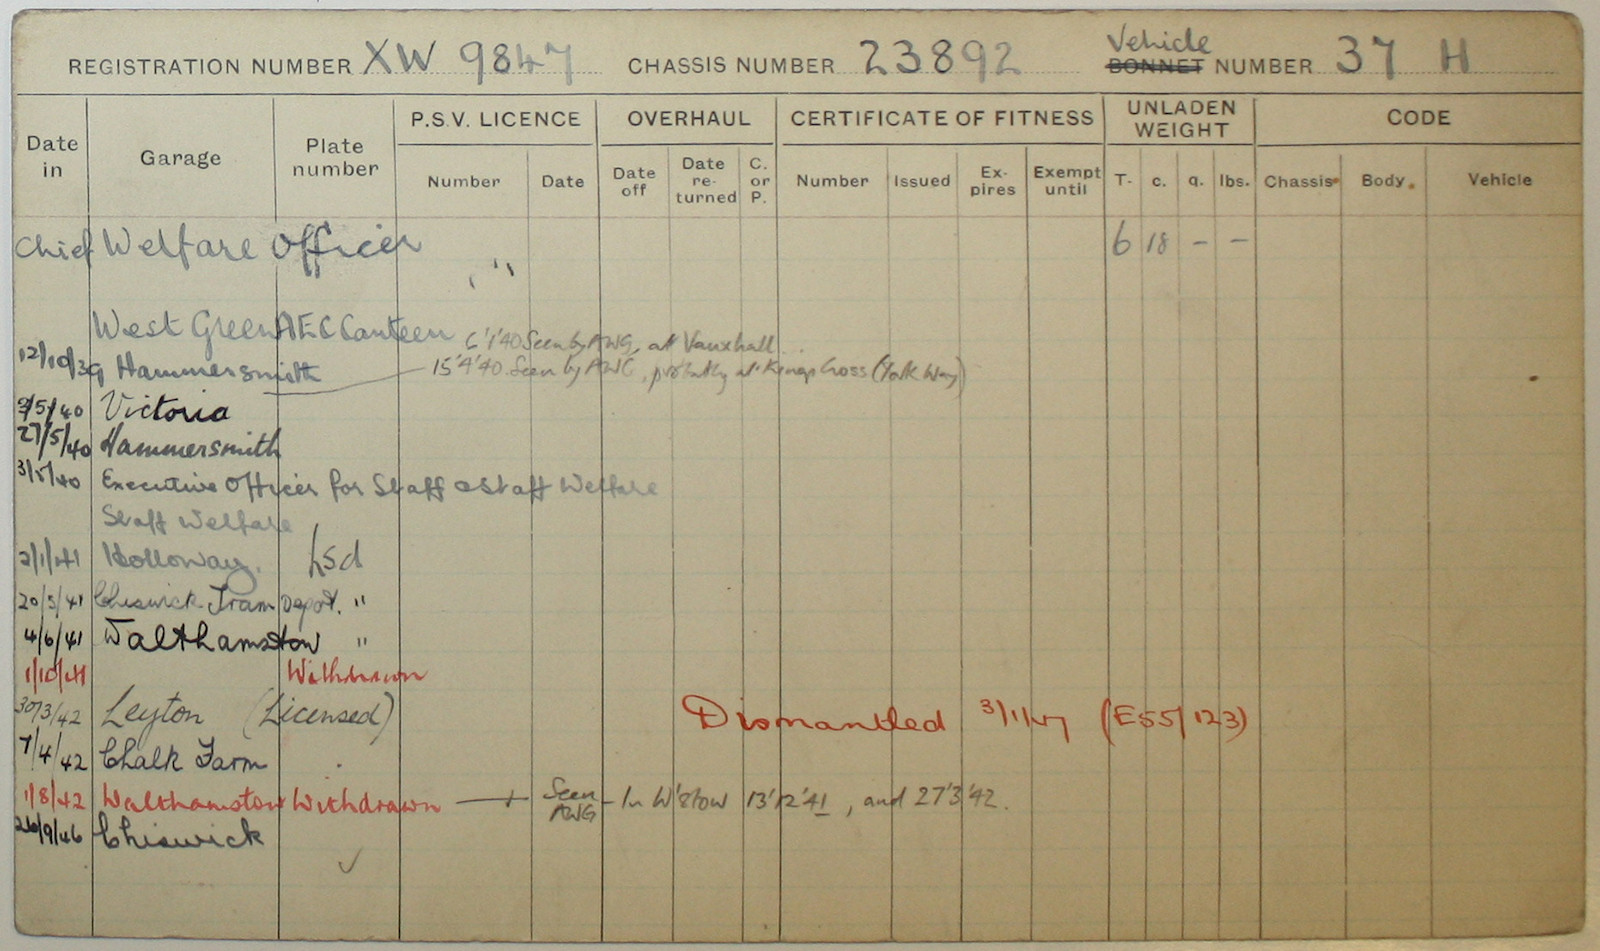 REGISTRATION NUMBER XW 9847 CHASSIS NUMBER 23892 Vehicle BONNET NUMBER 37 H
Date in Garage Plate number P.S.V. LICENCE OVERHAUL CERTIFICATE OF FITNESS UNLADEN WEIGHT CODE
Number Date Date off Date re-turned C. or P. Number Issued Ex-pires Exempt until T. c. q. lbs. Chassis Body. Vehicle
Chief Welfare Officer 6 18 - -
" 
West Green AEC Canteen 6'1'40 Seen by AWG, at Vauxhall
12/10/39 Hammersmith 15'4'40 Seen by AWG, probably at Kings Cross (York Way)
9/5/40 Victoria
27/5/40 Hammersmith
3/5/40 Executive Officer for Staff & Staff Welfare
Staff Welfare
2/1/41 Holloway. Lsd
20/5/41 Chiswick Tram Depot. "
4/6/41 Walthamstow "
1/10/41 Withdrawn
30/3/42 Leyton (Licensed) Dismantled 3/1/47 (E55/123)
7/4/42 Chalk Farm
1/8/42 Walthamstow Withdrawn Seen AWG - In W'stow 13'12'41, and 27'3'42.
26/9/46 Chiswick
✓